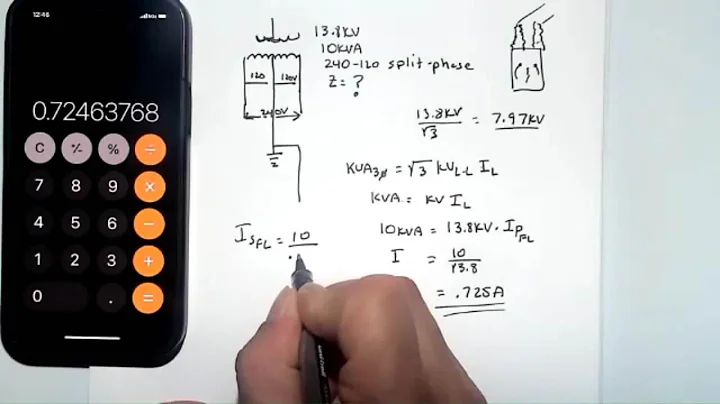 12:46
0.72463768
C +/- % ÷
7 8 9 ×
4 5 6 −
1 2 3 +
0 . =
13.8KV
10KVA
240-120 split-phase
Z = ?
120 120V
240V
13.8KV / √3 = 7.97KV
KVA3ø = √3 KVL-L IL
KVA = KV IL
10KVA = 13.8KV · IPFL
I = 10 / 13.8
= .725A
ISFL = 10 / .